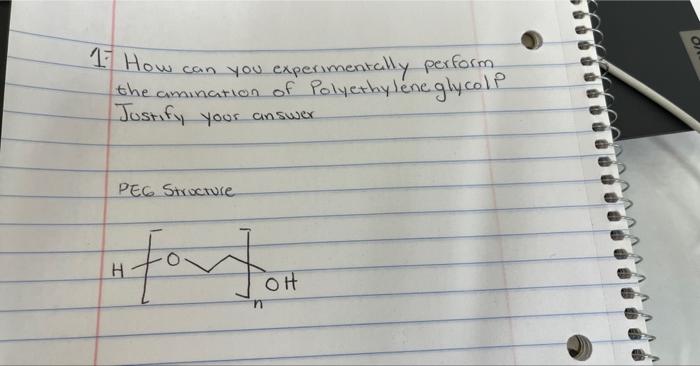 1- How can you experimentally perform
the amination of Polyethylene glycol?
Justify your answer
PEG Structure
H O OH
n